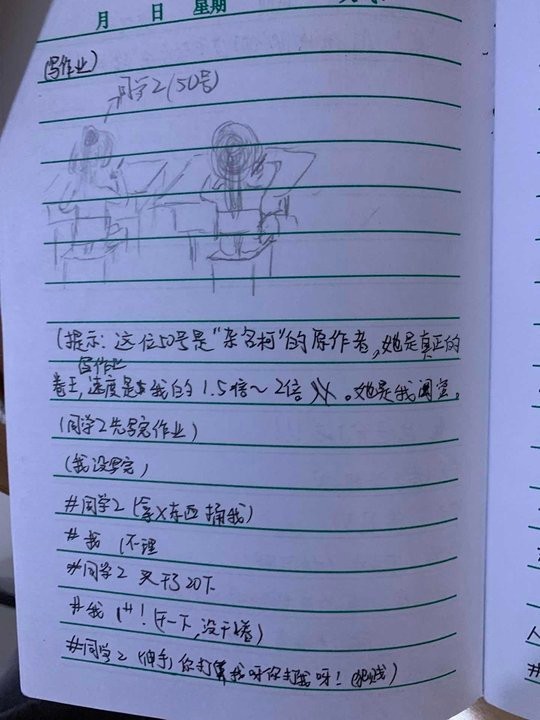 月 日 星期
(写作业)
同学2(50号)
(提示: 这位50号是“杂名柯”的原作者,她是真正的
写作业
卷王,速度是我的1.5倍~2倍。她是我闺蜜。
(同学2先写完作业)
(我没写完)
#同学2 (拿X东西捅我)
#我 (不理
#同学2 又干了20下
#我 1++! (一下,没干着)
#同学2 (伸手)你打我呀你打我呀!
人
#